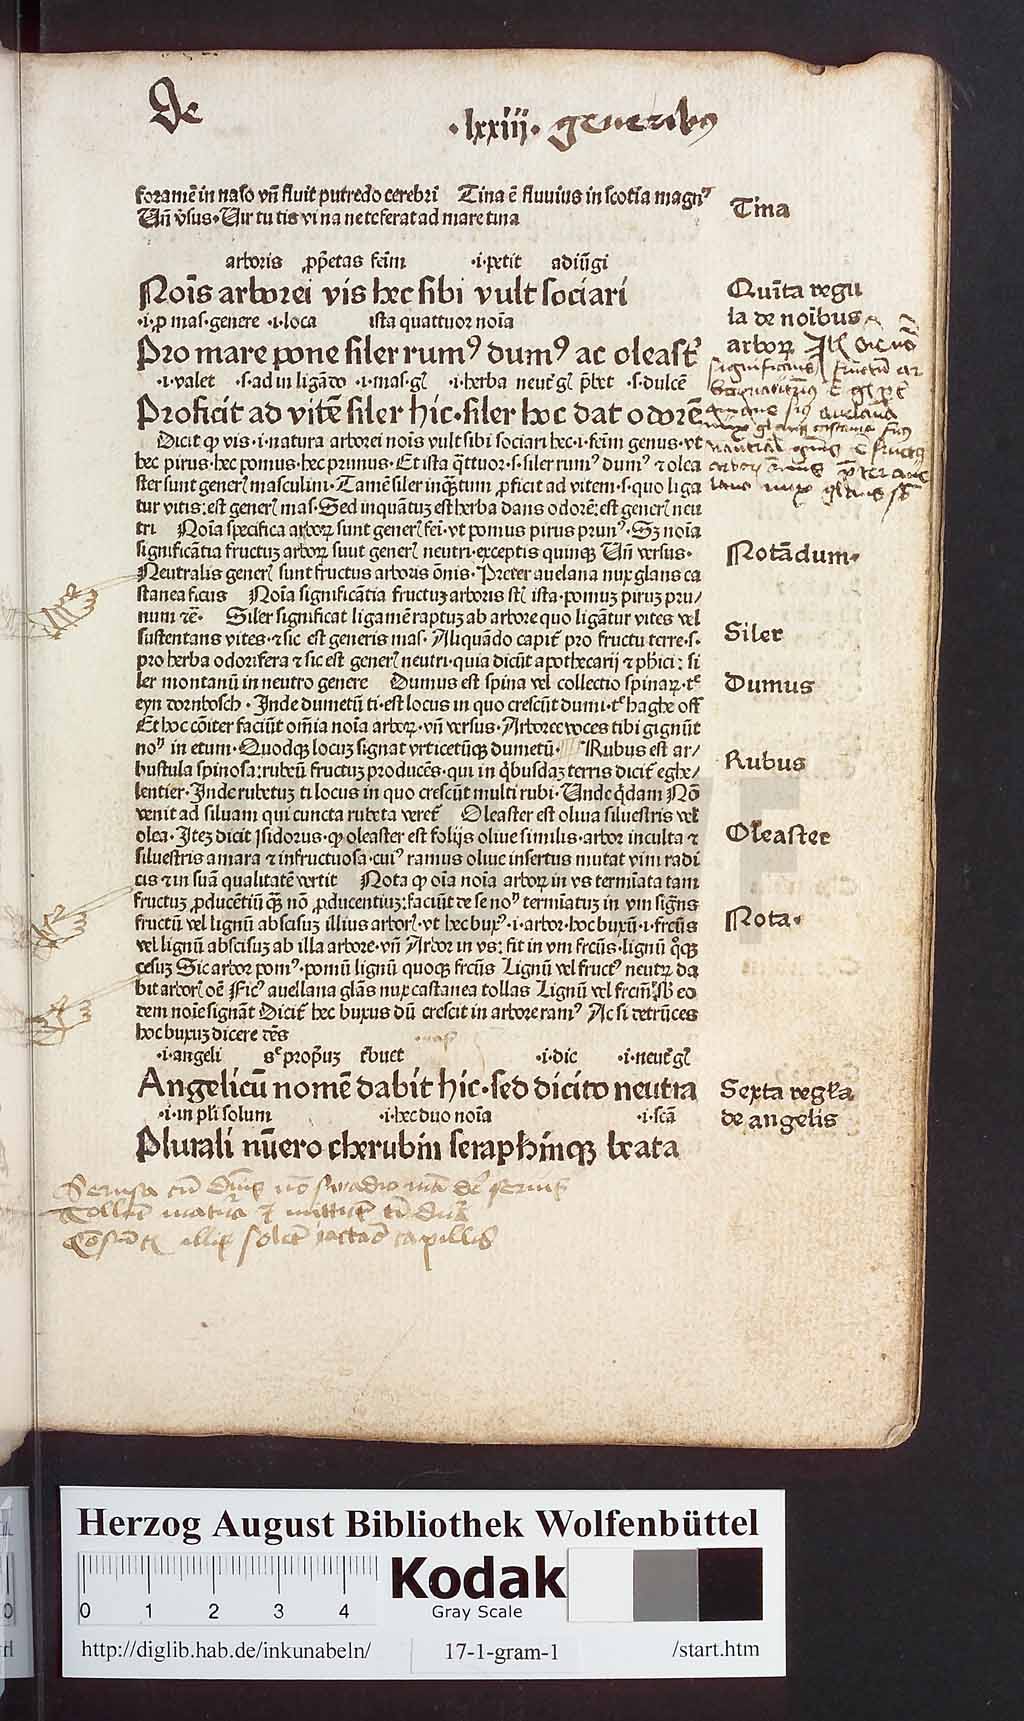 De
·lxxiij· generibꝰ
foramē in naso vñ fluit putredo cerebri Tina ē fluvius in scotia magnꝰ
Uñ v̄sus·Vir tu tis vi na ne tc ferat ad mare tina
Tina
arboris ꝓp̄etas fēim ·i·petit adiūgi
Noīs arborei vis hec sibi vult sociari
·i·ꝓ mas·genere ·i·loca ista quattuor noīa
Pro mare pone siler rumꝰ dumꝰ ac oleastꝭ
·i·valet ·s·ad in ligādo ·i·mas·gꝭ ·i·herba neutꝭ gꝭ p̄bet ·s·dulcē
Proficit ad vitē siler hic·siler hoc dat odorē
Quīta regu
la de noībus
arboꝝ
Dicit ꝙ vis·i·natura arborei noīs vult sibi sociari hec·i·fēim genus·vt
hec pirus·hec pomus·hec prunus·Et ista q̄ttuor·s·siler rumꝰ dumꝰ ⁊ olea
ster sunt generꝭ masculini·Tamē siler inq̄tum ꝓficit ad vitem·s·quo liga
tur vitis: est generꝭ mas·Sed inquātuꝫ est herba dans odorē: est generꝭ neu
tri Noīa specifica arboꝝ sunt generꝭ fei·vt pomus pirus prunꝰ·Sꝫ noīa
significātia fructuꝫ arboꝝ sunt generꝭ neutri·exceptis quinqꝫ Uñ versus·
Neutralis generꝭ sunt fructus arboris ōnis·Preter auelana nux glans ca
stanea ficus Noīa significātia fructuꝫ arboris stꝭ ista·pomuꝫ piruꝫ pru/
num ⁊ē· Siler significat ligamē raptuꝫ ab arbore quo ligātur vites vel
sustentans vites·⁊ sic est generis mas·Aliquādo capitꝭ pro fructu terre·s·
pro herba odorifera ⁊ sic est generꝭ neutri·quia dicūt apothecarij ⁊ phici: si
ler montanū in neutro genere Dumus est spina vel collectio spinaꝝ·tᵉ
eyn dornbosch·Inde dumetū ti·est locus in quo crescūt dumi·tᵉ haghe off
Et hoc cōiter faciūt om̄ia noīa arboꝝ·vñ versus·Arboree voces tibi gignūt
noꝰ in etum·Quodqꝫ locuꝫ signat vrticetūqꝫ dumetū· Rubus est ar/
bustula spinosa: rubeū fructuꝫ producēs·qui in q̄busdaꝫ terris dicitꝭ eghe/
lentier·Inde rubetuꝫ ti locus in quo crescūt multi rubi·Unde q̄dam Nō
venit ad siluam qui cuncta rubeta veretꝭ Oleaster est oliua siluestris vel
olea·Iteꝫ dicit Isidorus·ꝙ oleaster est folijs oliue similis·arbor inculta ⁊
siluestris amara ⁊ infructuosa·cuiꝰ ramus oliue insertus mutat vim radi
cis ⁊ in suā qualitatē vertit Nota ꝙ oīa noīa arboꝝ in vs termīata tam
fructuꝫ ꝓducētiū q̄ꝫ nō ꝓducentiuꝫ: faciūt de se noꝰ termīatuꝫ in vm signꝭns
fructū vel lignū abscisuꝫ illius arborꝭ·vt hec buxꝰ·i·arbor·hoc buxū·i·frcūs
vel lignū abscisuꝫ ab illa arbore·vñ Arbor in vs: fit in vm frcūs·lignū q̄ꝫqꝫ
cesuꝫ Sic arbor pomꝰ·pomū lignū quoqꝫ frcūs Lignū vel fructꝰ neutꝝ da
bit arborꝭ oē Ficꝰ auellana glās nux castanea tollas Lignū vel frcm̄ sb eo
dem noīe signāt Dicitꝭ hec buxus dū crescit in arbore ramꝰ Ac si detrūces
hoc buxuꝫ dicere dēs
Notādum·
Siler
Dumus
Rubus
Oleaster
Nota·
·i·angeli sᵉ proprꝭuꝫ t̄buet ·i·dic ·i·neutꝭ gꝭ
Angelicū nomē dabit hic·sed dicito neutra
·i·in plꝭi solum ·i·hec duo noīa ·i·scā
Plurali nūero cherubin seraphinqꝫ beata
Sexta regl̄a
de angelis
Herzog August Bibliothek Wolfenbüttel
0 1 2 3 4
Kodak
Gray Scale
http://diglib.hab.de/inkunabeln/
17-1-gram-1
/start.htm